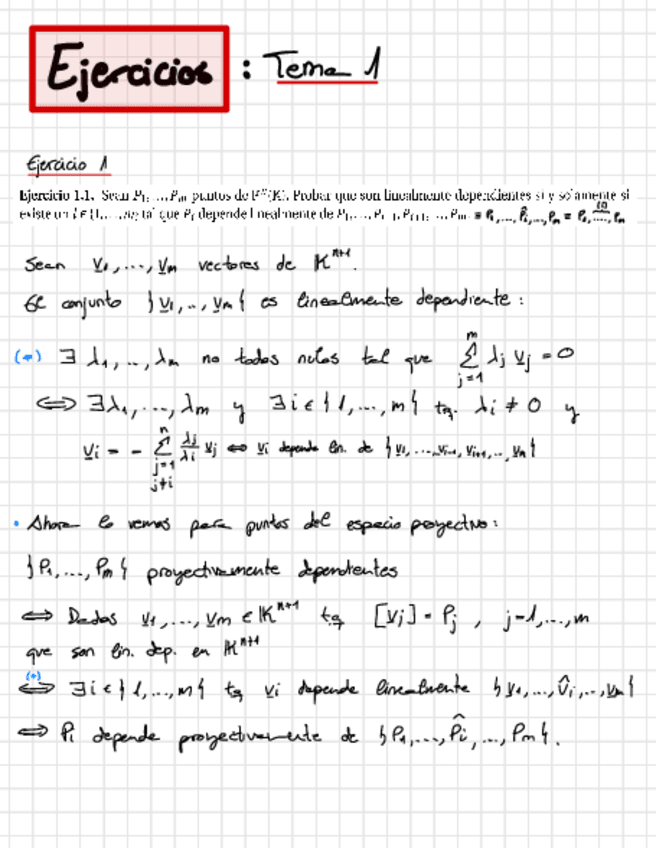 Ejercicios : Tema 1
Ejercicio 1
Ejercicio 1.1. Sean P₁, ..., Pₘ puntos de Pⁿ(K). Probar que son linealmente dependientes si y solamente si
existe un i ∈ {1, ..., m} tal que Pᵢ depende linealmente de P₁, ..., Pᵢ₋₁, Pᵢ₊₁, ..., Pₘ. ≡ P₁, ..., P̂ᵢ, ..., Pₘ ≡ P₁, ..., Pₘ
Sean v₁, ..., vₘ vectores de Kⁿ⁺¹.
El conjunto {v₁, .., vₘ} es linealmente dependiente :
(*) ∃ λ₁, .., λₘ no todos nulos tal que ∑_{j=1}^{m} λⱼ vⱼ = 0
⟺ ∃ λ₁, ..., λₘ y ∃ i ∈ {1, ..., m} tq. λᵢ ≠ 0 y
vᵢ = - ∑_{j=1, j≠i}^{n} λⱼ/λᵢ vⱼ ⟺ vᵢ depende lin. de {v₁, ..., vᵢ₋₁, vᵢ₊₁, .., vₘ}
• Ahora lo vemos para puntos del espacio proyectivo:
{P₁, ..., Pₘ} proyectivamente dependientes
⟺ Dados v₁, ..., vₘ ∈ Kⁿ⁺¹ tq [vⱼ] = Pⱼ , j=1, ..., m
que son lin. dep. en Kⁿ⁺¹
(*) ⟺ ∃ i ∈ {1, ..., m} tq vᵢ depende linealmente {v₁, ..., v̂ᵢ, .., vₘ}
⟺ Pᵢ depende proyectivamente de {P₁, ..., P̂ᵢ, ..., Pₘ}.